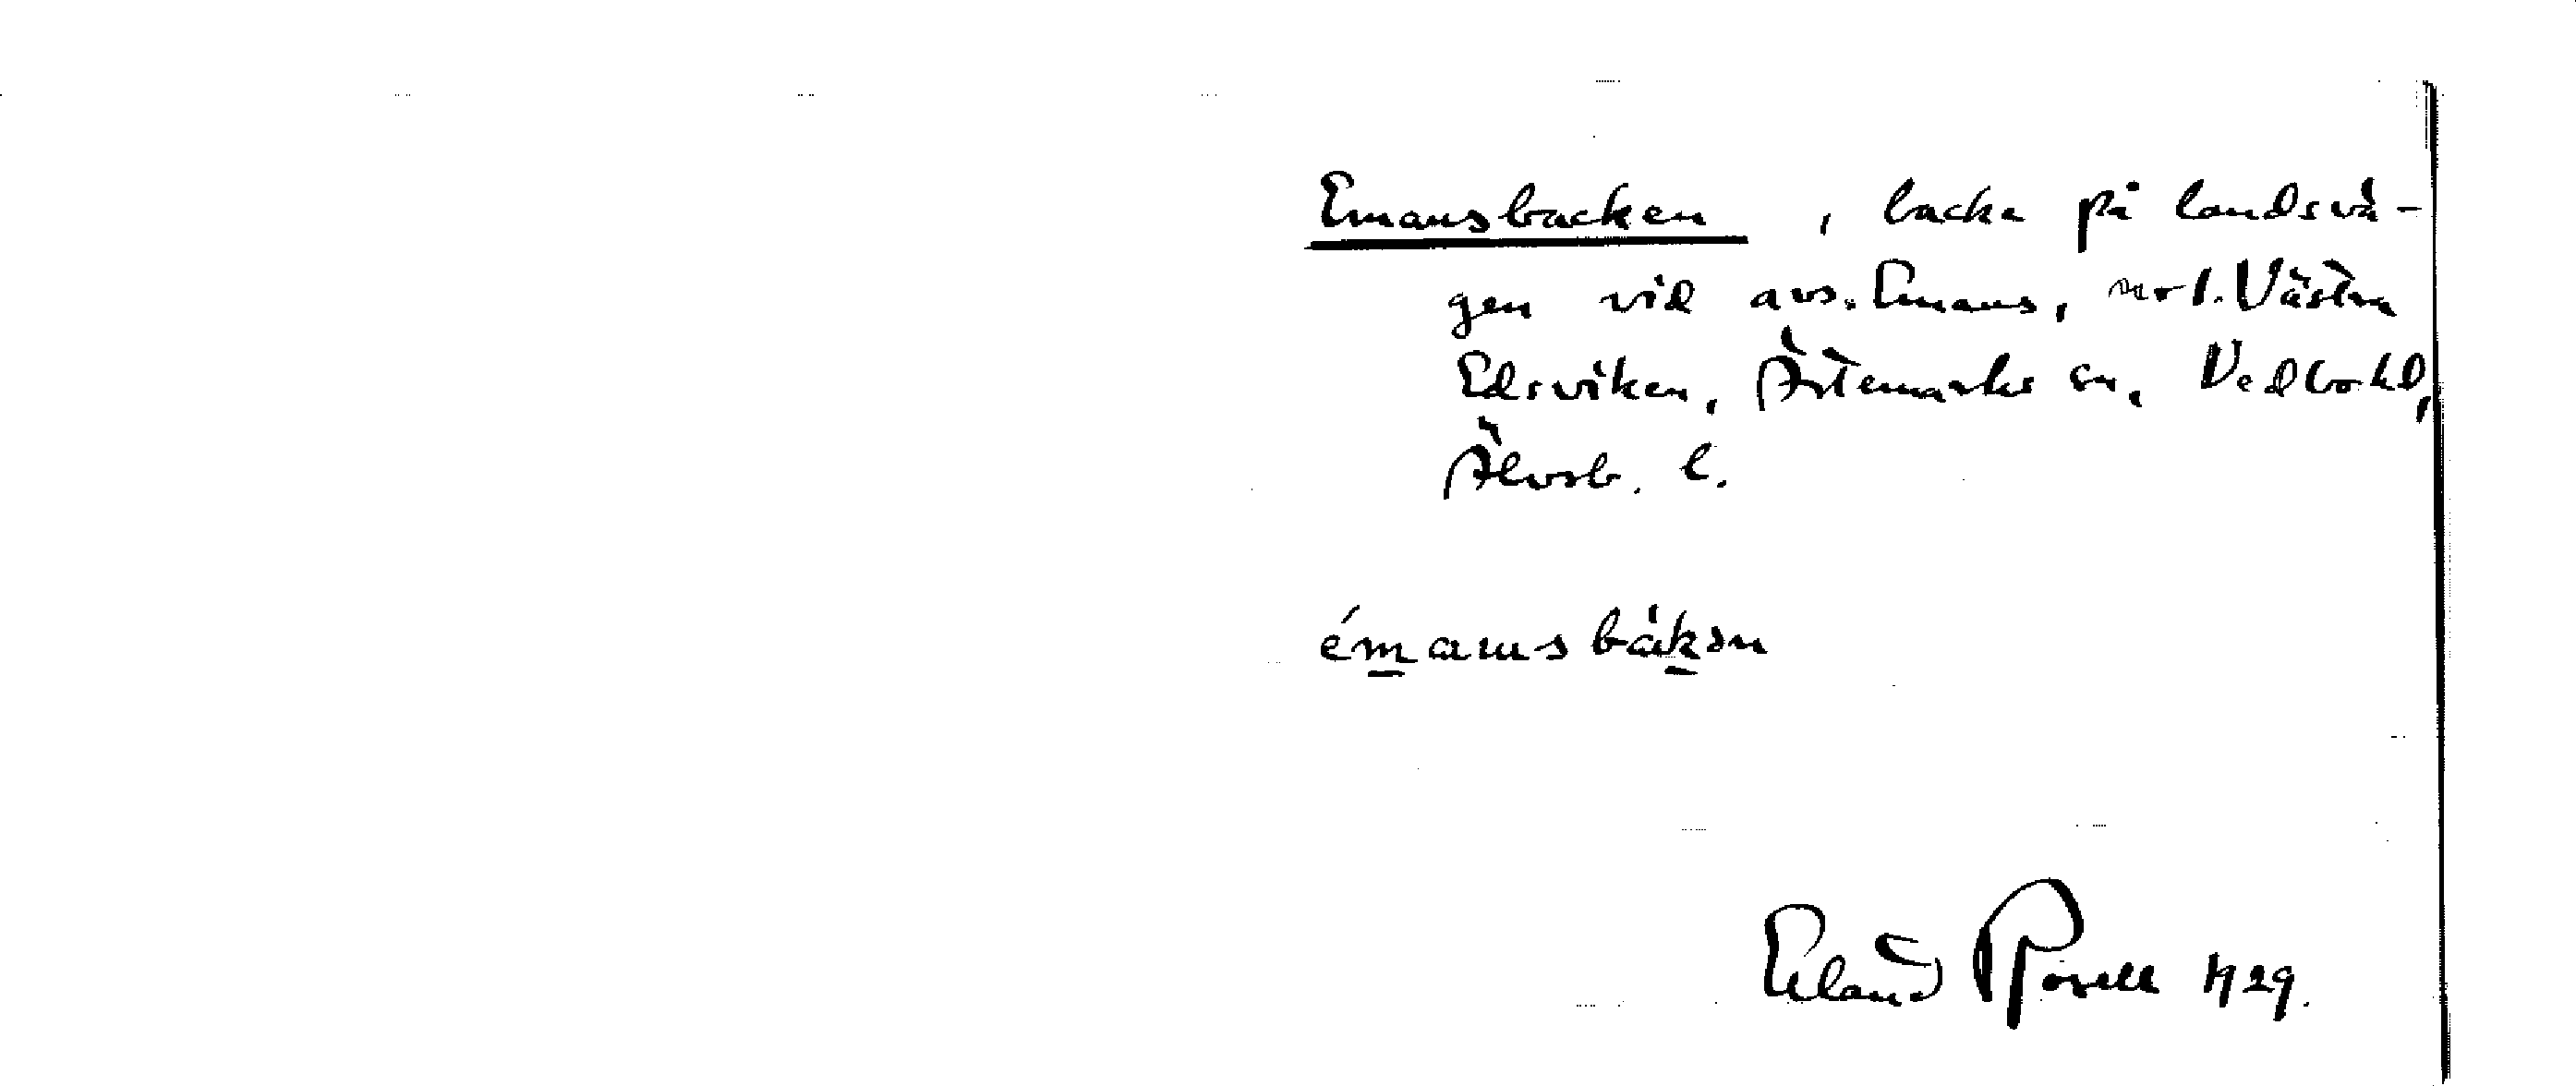 Emausbacken, backe på landsvä-
gen vid avs. Emaus, not. Västra
Edsviken, Ärtemarks sn, Vedbo hd,
Älvsb. l.
émausbákən
Erland Rosell 1929.